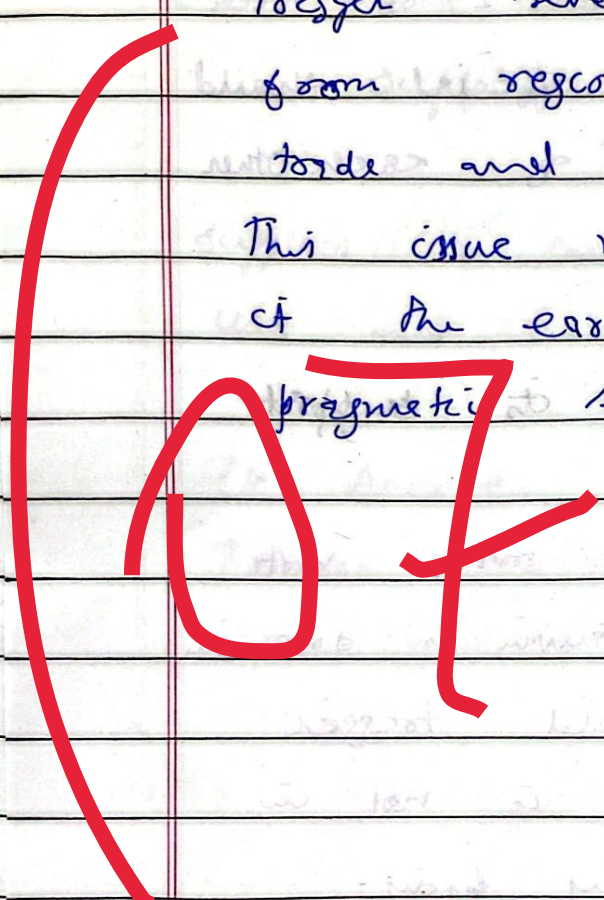 from
trade and
This issue
at the ear
pragmatic s
07